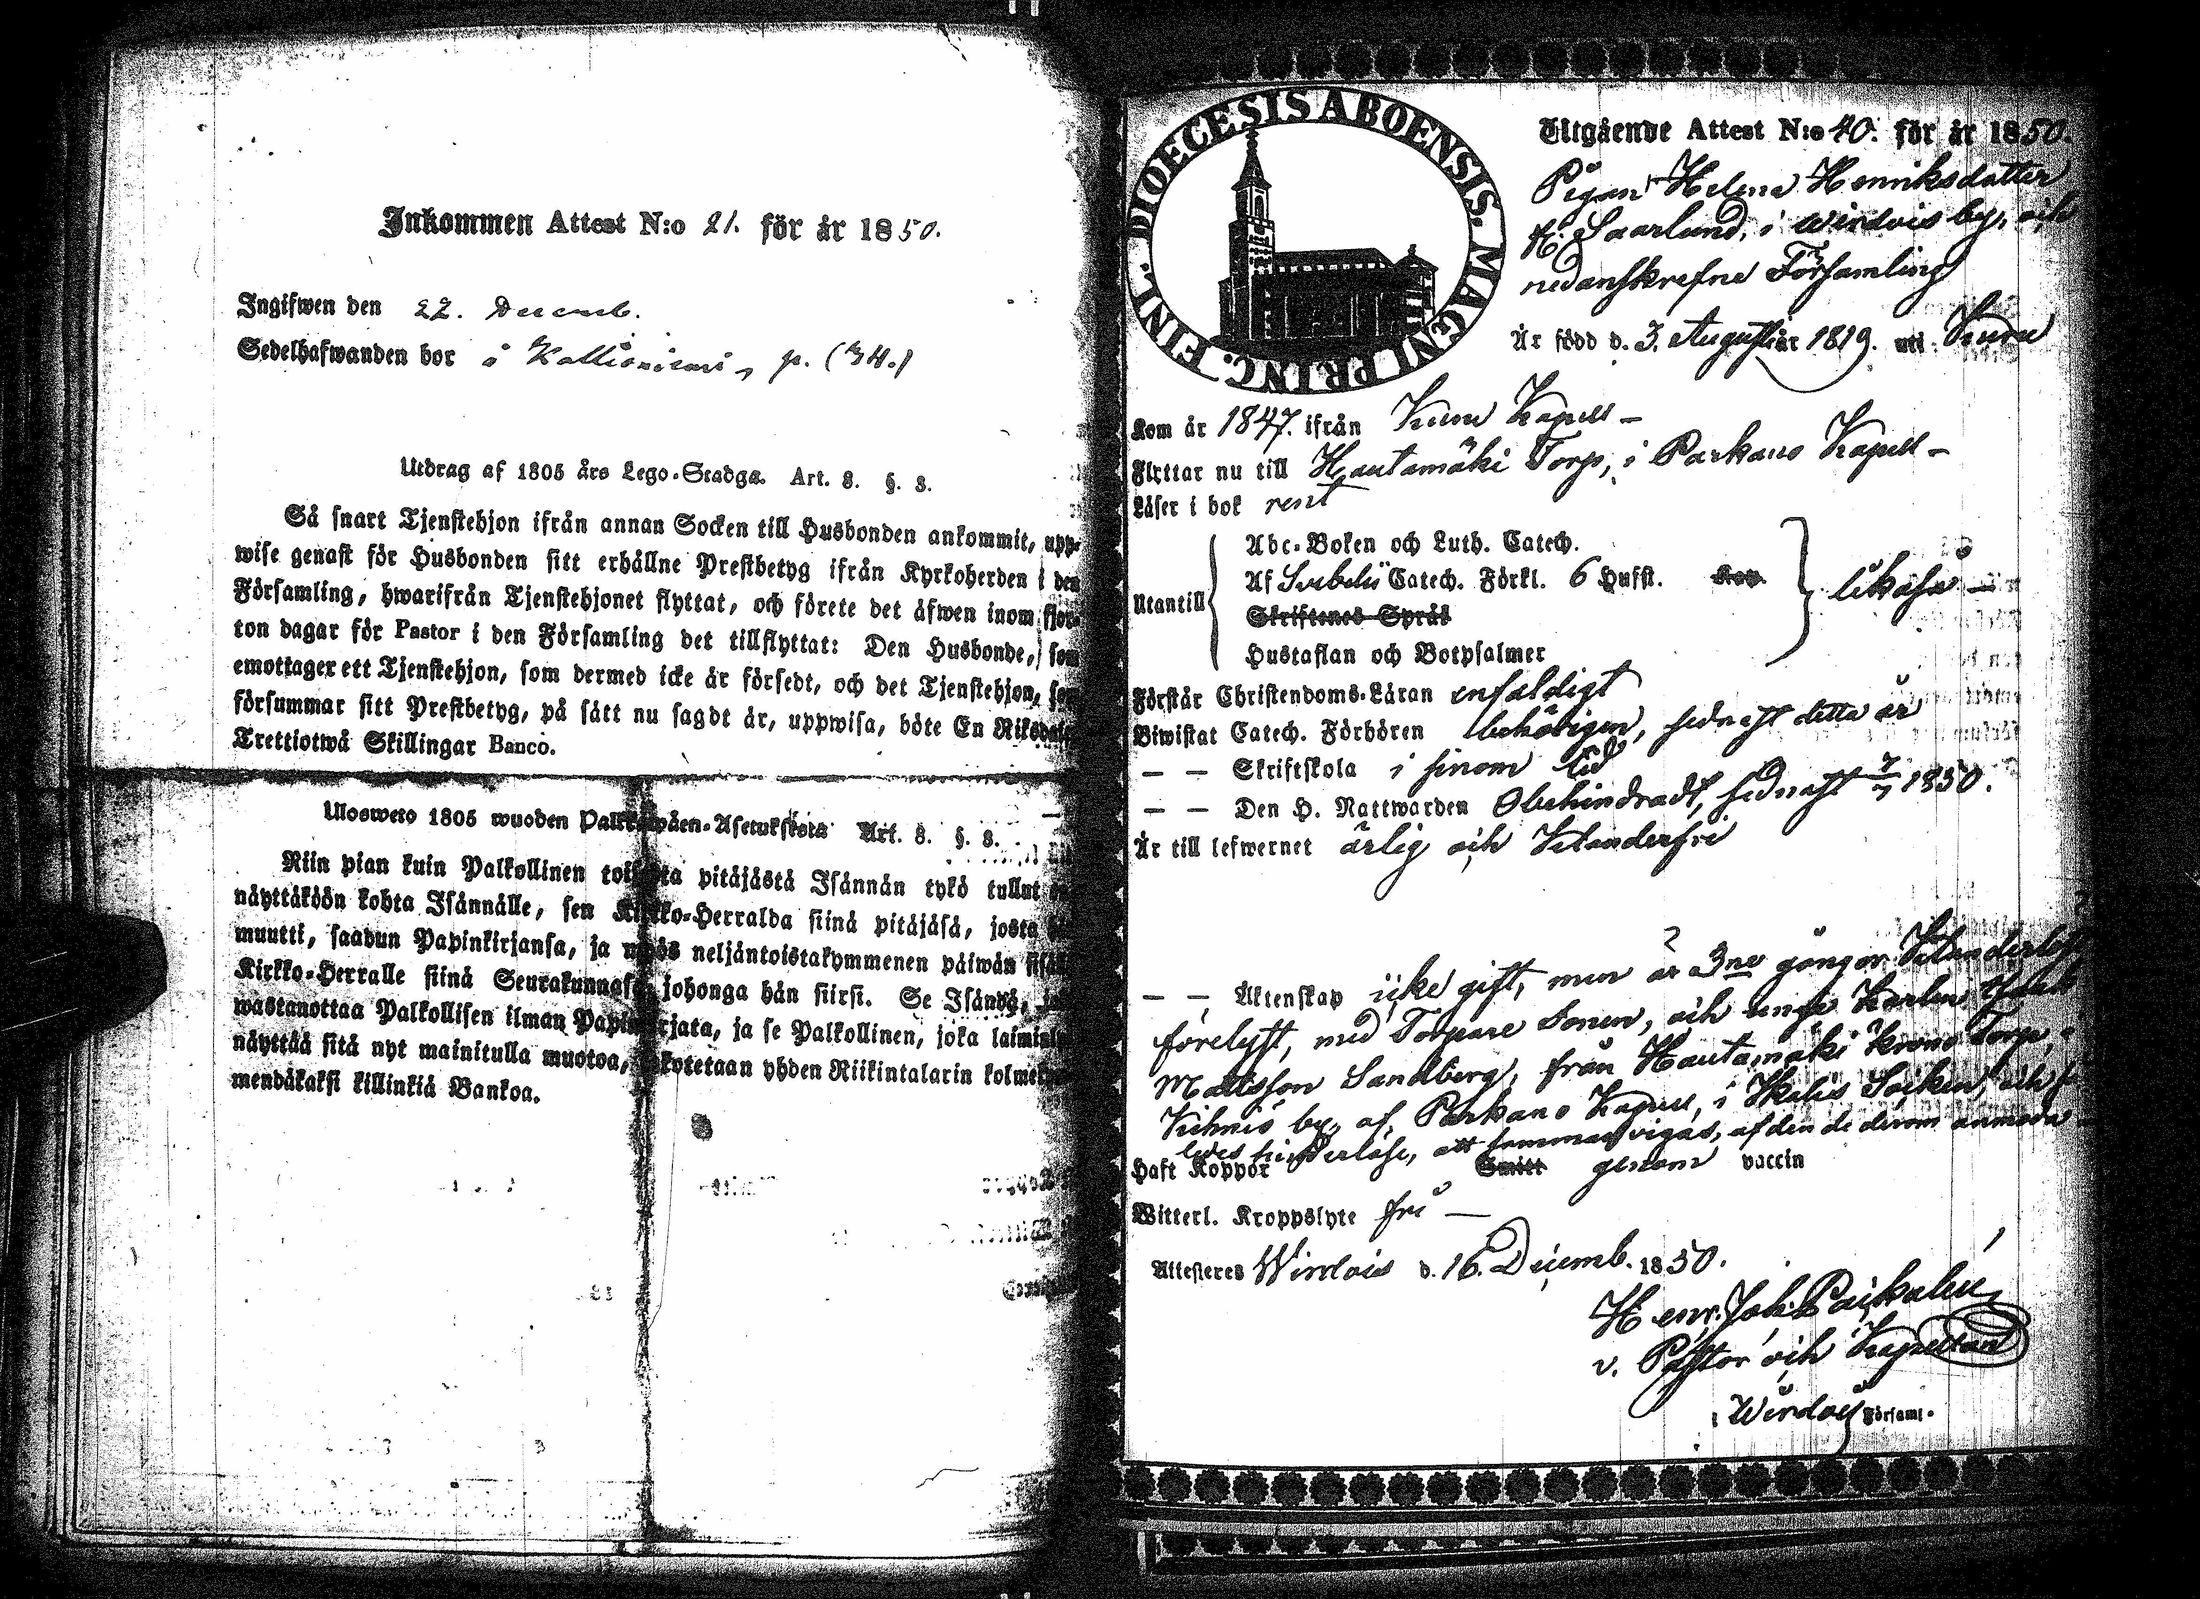 Inkommen Attest N:o 21. för år 1850.
Ingifwen den 22. Decemb.
Sedelhafwanden bor å p. (34.)
Utdrag af 1805 års Lego-Stadga. Art. 8. §. 3.
Så snart Tjenstehjon ifrån annan Socken till Husbonden ankommit, upp-
wise genast för Husbonden sitt erhållne Prestbetyg ifrån Kyrkoherden i den
Församling, hwarifrån Tjenstehjonet flyttat, och förete det äfwen inom fjor-
ton dagar för Pastor i den Församling det tillflyttat: Den Husbonde, som
emottager ett Tjenstehjon, som dermed icke är försedt, och det Tjenstehjon, som
försummar sitt Prestbetyg, på sätt nu sagdt är, uppwisa, böte En Riksdaler
Trettiotwå Skillingar Banco.
Ulosweto 1805 wuoden Art. 8. §. 3.
Niin pian kuin Palkollinen toisesta pitäjästä Isännän tykö tullut
näyttäköön kohta Isännälle, sen Kirkko-Herralda siinä pitäjäsä, josta hän
muutti, saadun Papinkirjansa, ja myös neljäntoistakymmenen päiwän sisäll
Kirkko-Herralle siinä Seurakunnasa, johonga hän siirsi. Se Isändä,
wastanottaa Palkollisen ilman Papinkirjata, ja se Palkollinen, joka laiminlyö
näyttää sitä nyt mainitulla muotoa, sakotetaan yhden Riikintalarin kolmeky
mendäkaksi killinkiä Bankoa.
DIOECESIS ABOENSIS. MAGNI PRINC. FINL.
Utgående Attest N:o 40. för år 1850.
Pigan Helena Henriksdotter
Saarlund, i Wirdois by, och
nedanskrefne Församling
Är född d. 3. Augusti år 1819. uti Kuru
Kom år 1847. ifrån Kuru Kapell –
Flyttar nu till Hautamäki Torp, i Parkano Kapell –
Läser i bok rent
Utantill
Abc-Boken och Luth. Catech.
Af Svebelii Catech. Förkl. 6 Hufst. Kap.
Skriftenes Språk
Hustaflan och Botpsalmer
likaså –
Förstår Christendoms-Läran enfaldigt
Biwistat Catech. Förhören behörigen, sednast detta år
– – Skriftskola i sinom tid
– – Den H. Nattwarden Obehindradt, sednast 7/7 1850.
Är till lefwernet ärlig och Klanderfri
– – Äktenskap icke gift, men är 3ne gånger
förelyst, med Torpare Sonen, och unga Karlen
Mattsson Sandberg, från Hautamäki krono Torp,
Kihniö by, af Parkano Kapell, i Ikalis Socken, och
hinderlöse, att sammanvigas, af den de derom anmoda
Haft Koppor Smitt genom vaccin
Witterl. Kroppslyte fri –
Attesteres Wirdois d. 16. Decemb. 1850.
Henr. Joh.
v. Pastor och Kapellan
i Wirdois Församl.